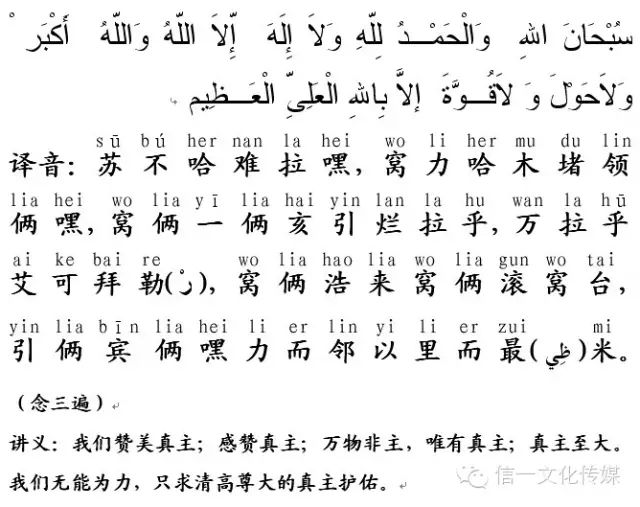 سُبْحَانَ اللهِ وَالْحَمْـــدُ لِلَّهِ وَلاَ إِلَهَ إِلاَّ اللَّهُ وَاللَّهُ أَكْبَر ْ
وَلاَحَوْلَ وَ لاَقُـــوَّةَ إلاَّ بِاللهِ الْعَلِىِّ الْعَـــظِيم
sū bú her nan la hei wo li her mu du lin
译音：苏不哈难拉嘿，窝力哈木堵领
lia hei wo lia yī lia hai yin lan la hu wan la hū
俩嘿，窝俩一俩亥引烂拉乎，万拉乎
ai ke bai re wo lia hao lia wo lia gun wo tai
艾可拜勒(رْ)，窝俩浩来窝俩滚窝台，
yin lia bīn lia hei li er lin yi li er zui mi
引俩宾俩嘿力而邻以里而最(ظِي)米。
（念三遍）
讲义：我们赞美真主；感赞真主；万物非主，唯有真主；真主至大。
我们无能为力，只求清高尊大的真主护佑。
信一文化传媒